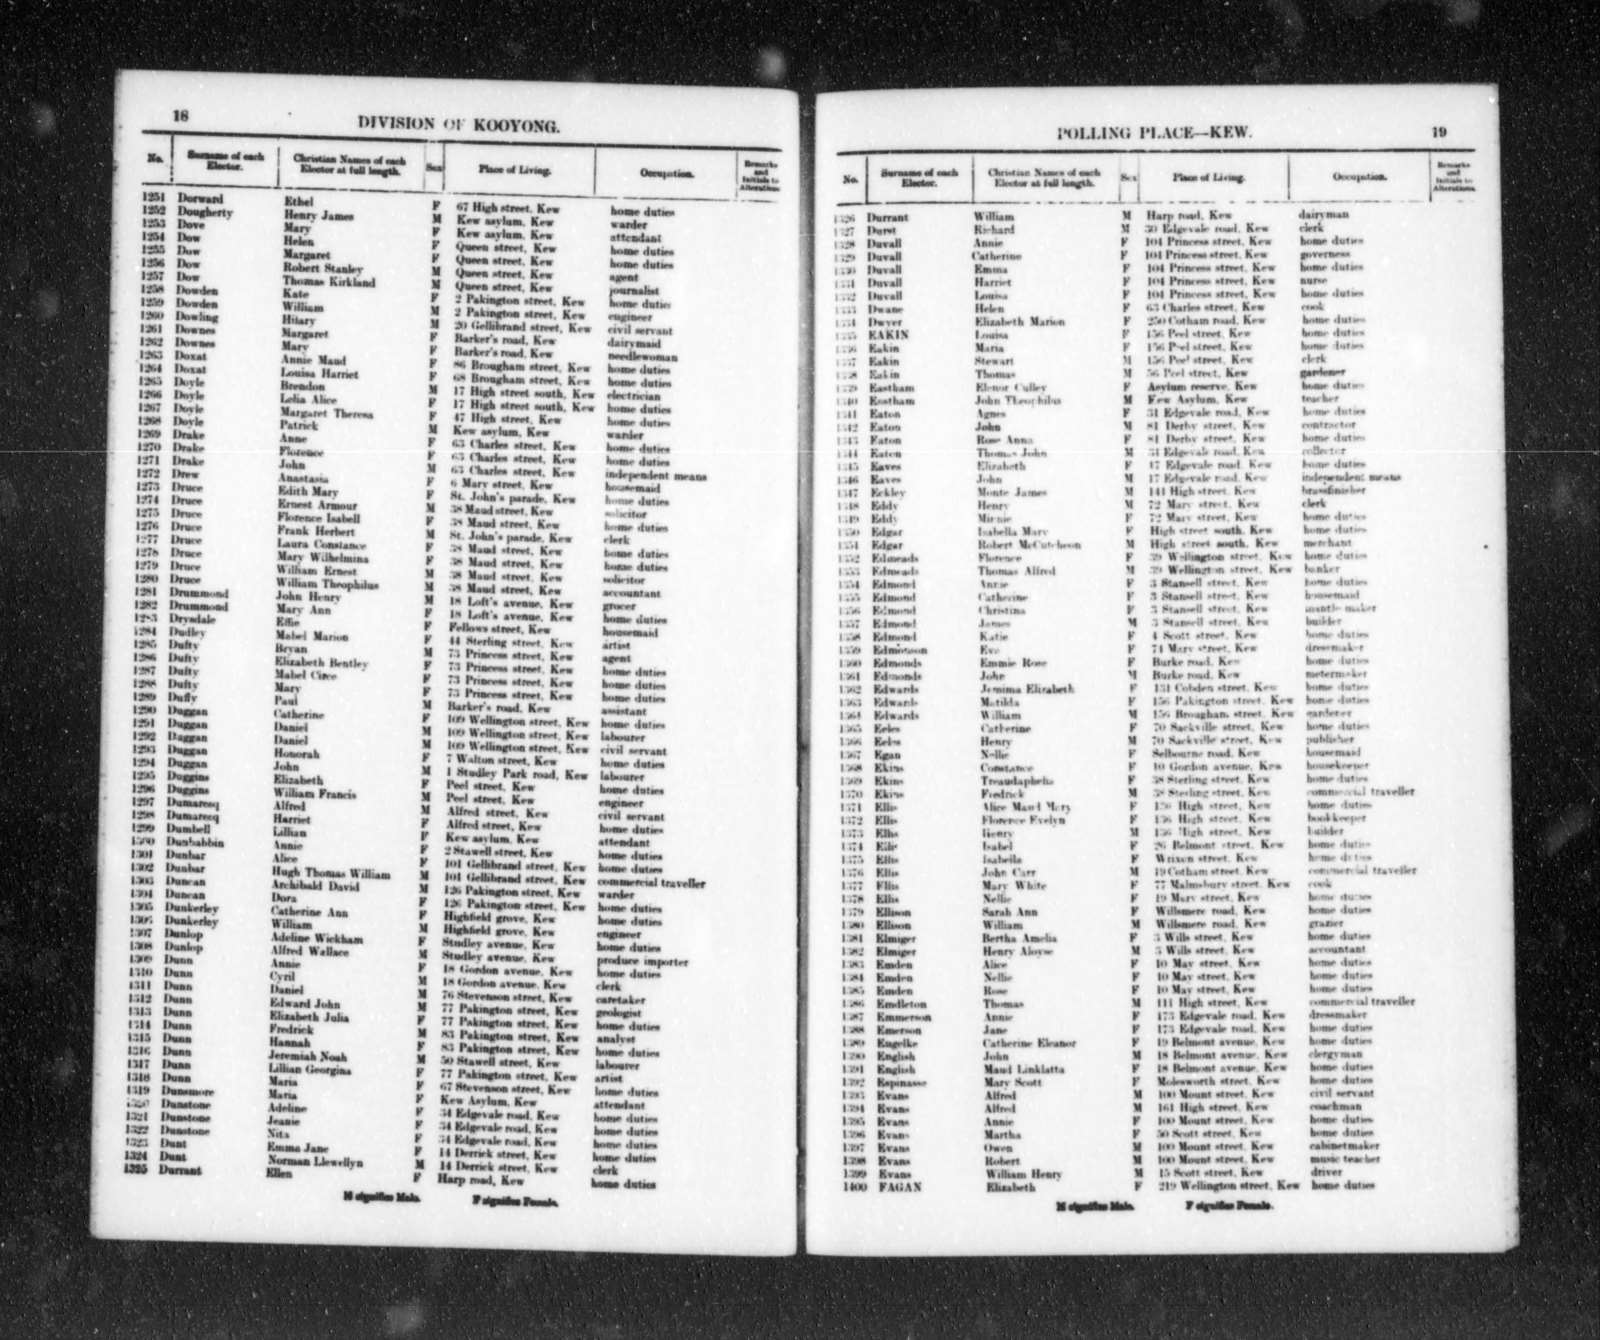 18
DIVISION OF KOOYONG.
No. Surname of each Elector. Christian Names of each Elector at full length. Sex Place of Living. Occupation. Remarks and Initials to Alterations.
1251 Dorward Ethel F 67 High street, Kew home duties
1252 Dougherty Henry James M Kew asylum, Kew warder
1253 Dove Mary F Kew asylum, Kew attendant
1254 Dow Helen F Queen street, Kew home duties
1255 Dow Margaret F Queen street, Kew home duties
1256 Dow Robert Stanley M Queen street, Kew agent
1257 Dow Thomas Kirkland M Queen street, Kew journalist
1258 Dowden Kate F 2 Pakington street, Kew home duties
1259 Dowden William M 2 Pakington street, Kew engineer
1260 Dowling Hilary M 20 Gellibrand street, Kew civil servant
1261 Downes Margaret F Barker's road, Kew dairymaid
1262 Downes Mary F Barker's road, Kew needlewoman
1263 Doxat Annie Maud F 86 Brougham street, Kew home duties
1264 Doxat Louisa Harriet F 68 Brougham street, Kew home duties
1265 Doyle Brendon M 17 High street south, Kew electrician
1266 Doyle Lelia Alice F 17 High street south, Kew home duties
1267 Doyle Margaret Theresa F 47 High street, Kew home duties
1268 Doyle Patrick M Kew asylum, Kew warder
1269 Drake Anne F 63 Charles street, Kew home duties
1270 Drake Florence F 63 Charles street, Kew home duties
1271 Drake John M 63 Charles street, Kew independent means
1272 Drew Anastasia F 6 Mary street, Kew housemaid
1273 Druce Edith Mary F St. John's parade, Kew home duties
1274 Druce Ernest Armour M 38 Maud street, Kew solicitor
1275 Druce Florence Isabell F 38 Maud street, Kew home duties
1276 Druce Frank Herbert M St. John's parade, Kew clerk
1277 Druce Laura Constance F 38 Maud street, Kew home duties
1278 Druce Mary Wilhelmina F 38 Maud street, Kew home duties
1279 Druce William Ernest M 38 Maud street, Kew solicitor
1280 Druce William Theophilus M 38 Maud street, Kew accountant
1281 Drummond John Henry M 18 Loft's avenue, Kew grocer
1282 Drummond Mary Ann F 18 Loft's avenue, Kew home duties
1283 Drysdale Effie F Fellows street, Kew housemaid
1284 Dudley Mabel Marion F 44 Sterling street, Kew artist
1285 Dufty Bryan M 73 Princess street, Kew agent
1286 Dufty Elizabeth Bentley F 73 Princess street, Kew home duties
1287 Dufty Mabel Circe F 73 Princess street, Kew home duties
1288 Dufty Mary F 73 Princess street, Kew home duties
1289 Duffy Paul M Barker's road, Kew assistant
1290 Duggan Catherine F 109 Wellington street, Kew home duties
1291 Duggan Daniel M 109 Wellington street, Kew labourer
1292 Duggan Daniel M 109 Wellington street, Kew civil servant
1293 Duggan Honorah F 7 Walton street, Kew home duties
1294 Duggan John M 1 Studley Park road, Kew labourer
1295 Duggins Elizabeth F Peel street, Kew home duties
1296 Duggins William Francis M Peel street, Kew engineer
1297 Dumaresq Alfred M Alfred street, Kew civil servant
1298 Dumaresq Harriet F Alfred street, Kew home duties
1299 Dumbell Lillian F Kew asylum, Kew attendant
1300 Dunbabbin Annie F 2 Stawell street, Kew home duties
1301 Dunbar Alice F 101 Gellibrand street, Kew home duties
1302 Dunbar Hugh Thomas William M 101 Gellibrand street, Kew commercial traveller
1303 Duncan Archibald David M 126 Pakington street, Kew warder
1304 Duncan Dora F 126 Pakington street, Kew home duties
1305 Dunkerley Catherine Ann F Highfield grove, Kew home duties
1306 Dunkerley William M Highfield grove, Kew engineer
1307 Dunlop Adeline Wickham F Studley avenue, Kew home duties
1308 Dunlop Alfred Wallace M Studley avenue, Kew produce importer
1309 Dunn Annie F 18 Gordon avenue, Kew home duties
1310 Dunn Cyril M 18 Gordon avenue, Kew clerk
1311 Dunn Daniel M 76 Stevenson street, Kew caretaker
1312 Dunn Edward John M 77 Pakington street, Kew geologist
1313 Dunn Elizabeth Julia F 77 Pakington street, Kew home duties
1314 Dunn Fredrick M 83 Pakington street, Kew analyst
1315 Dunn Hannah F 83 Pakington street, Kew home duties
1316 Dunn Jeremiah Noah M 50 Stawell street, Kew labourer
1317 Dunn Lillian Georgina F 77 Pakington street, Kew artist
1318 Dunn Maria F 67 Stevenson street, Kew home duties
1319 Dunsmore Maria F Kew Asylum, Kew attendant
1320 Dunstone Adeline F 34 Edgevale road, Kew home duties
1321 Dunstone Jeanie F 34 Edgevale road, Kew home duties
1322 Dunstone Nita F 34 Edgevale road, Kew home duties
1323 Dunt Emma Jane F 14 Derrick street, Kew home duties
1324 Dunt Norman Llewellyn M 14 Derrick street, Kew clerk
1325 Durrant Ellen F Harp road, Kew home duties
M signifies Male. F signifies Female.
POLLING PLACE—KEW.
19
No. Surname of each Elector. Christian Names of each Elector at full length. Sex Place of Living. Occupation. Remarks and Initials to Alterations.
1326 Durrant William M Harp road, Kew dairyman
1327 Durst Richard M 30 Edgevale road, Kew clerk
1328 Duvall Annie F 104 Princess street, Kew home duties
1329 Duvall Catherine F 104 Princess street, Kew governess
1330 Duvall Emma F 104 Princess street, Kew home duties
1331 Duvall Harriet F 104 Princess street, Kew nurse
1332 Duvall Louisa F 104 Princess street, Kew home duties
1333 Dwane Helen F 63 Charles street, Kew cook
1334 Dwyer Elizabeth Marion F 250 Cotham road, Kew home duties
1335 EAKIN Louisa F 156 Peel street, Kew home duties
1336 Eakin Maria F 156 Peel street, Kew home duties
1337 Eakin Stewart M 156 Peel street, Kew clerk
1338 Eakin Thomas M 56 Peel street, Kew gardener
1339 Eastham Elenor Culley F Asylum reserve, Kew home duties
1340 Eastham John Theophilus M Kew Asylum, Kew teacher
1341 Eaton Agnes F 31 Edgevale road, Kew home duties
1342 Eaton John M 81 Derby street, Kew contractor
1343 Eaton Rose Anna F 81 Derby street, Kew home duties
1344 Eaton Thomas John M 31 Edgevale road, Kew collector
1345 Eaves Elizabeth F 17 Edgevale road, Kew home duties
1346 Eaves John M 17 Edgevale road, Kew independent means
1347 Eckley Monte James M 141 High street, Kew brassfinisher
1348 Eddy Henry M 72 Mary street, Kew clerk
1349 Eddy Minnie F 72 Mary street, Kew home duties
1350 Edgar Isabella Mary F High street south, Kew home duties
1351 Edgar Robert McCutcheon M High street south, Kew merchant
1352 Edmeads Florence F 39 Wellington street, Kew home duties
1353 Edmeads Thomas Alfred M 39 Wellington street, Kew banker
1354 Edmond Annie F 3 Stansell street, Kew home duties
1355 Edmond Catherine F 3 Stansell street, Kew housemaid
1356 Edmond Christina F 3 Stansell street, Kew mantle maker
1357 Edmond James M 3 Stansell street, Kew builder
1358 Edmond Katie F 4 Scott street, Kew home duties
1359 Edmondson Eva F 74 Mary street, Kew dressmaker
1360 Edmonds Emmie Rose F Burke road, Kew home duties
1361 Edmonds John M Burke road, Kew metermaker
1362 Edwards Jemima Elizabeth F 131 Cobden street, Kew home duties
1363 Edwards Matilda F 156 Pakington street, Kew home duties
1364 Edwards William M 156 Brougham street, Kew gardener
1365 Eeles Catherine F 70 Sackville street, Kew home duties
1366 Eeles Henry M 70 Sackville street, Kew publisher
1367 Egan Nellie F Selbourne road, Kew housemaid
1368 Ekins Constance F 10 Gordon avenue, Kew housekeeper
1369 Ekins Treaudaphelia F 38 Sterling street, Kew home duties
1370 Ekins Fredrick M 38 Sterling street, Kew commercial traveller
1371 Ellis Alice Maud Mary F 136 High street, Kew home duties
1372 Ellis Florence Evelyn F 136 High street, Kew bookkeeper
1373 Ellis Henry M 136 High street, Kew builder
1374 Ellis Isabel F 26 Belmont street, Kew home duties
1375 Ellis Isabella F Wrixon street, Kew home duties
1376 Ellis John Carr M 19 Cotham street, Kew commercial traveller
1377 Ellis Mary White F 77 Malmsbury street, Kew cook
1378 Ellis Nellie F 19 Mary street, Kew home duties
1379 Ellison Sarah Ann F Willsmere road, Kew home duties
1380 Ellison William M Willsmere road, Kew grazier
1381 Elmiger Bertha Amelia F 3 Wills street, Kew home duties
1382 Elmiger Henry Aloyse M 3 Wills street, Kew accountant
1383 Emden Alice F 10 May street, Kew home duties
1384 Emden Nellie F 10 May street, Kew home duties
1385 Emden Rose F 10 May street, Kew home duties
1386 Emdleton Thomas M 111 High street, Kew commercial traveller
1387 Emmerson Annie F 173 Edgevale road, Kew dressmaker
1388 Emerson Jane F 173 Edgevale road, Kew home duties
1389 Engelke Catherine Eleanor F 19 Belmont avenue, Kew home duties
1390 English John M 18 Belmont avenue, Kew clergyman
1391 English Maud Linklatta F 18 Belmont avenue, Kew home duties
1392 Espinasse Mary Scott F Molesworth street, Kew home duties
1393 Evans Alfred M 100 Mount street, Kew civil servant
1394 Evans Alfred M 161 High street, Kew coachman
1395 Evans Annie F 100 Mount street, Kew home duties
1396 Evans Martha F 50 Scott street, Kew home duties
1397 Evans Owen M 100 Mount street, Kew cabinetmaker
1398 Evans Robert M 100 Mount street, Kew music teacher
1399 Evans William Henry M 15 Scott street, Kew driver
1400 FAGAN Elizabeth F 219 Wellington street, Kew home duties
M signifies Male. F signifies Female.